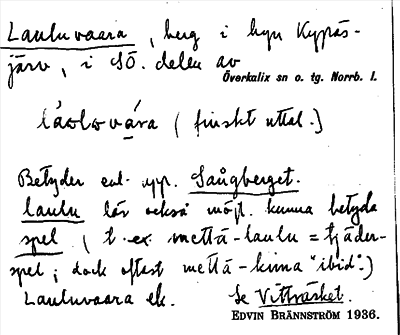 Lauluvaara, berg i byn Kypäs-
järv, i SÖ. delen av
Överkalix sn o. tg. Norrb. l.
(finskt uttal.)
Betyder enl. upp. Sångberget.
laulu lär också möjl. kunna betyda
spel (t. ex. mettä-laulu = tjäder-
spel; dock oftast mettä-kiima "ibid".)
Lauluvaara ek. Se Vitträsket.
EDVIN BRÄNNSTRÖM 1936.